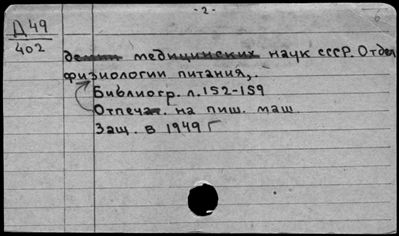 - 2 -
Д 49
402
демии медицинских наук СССР. Отдел
физиологии питания,.
Библиогр. л. 152-159
Отпечат. на пиш. маш.
Защ. в 1949 г